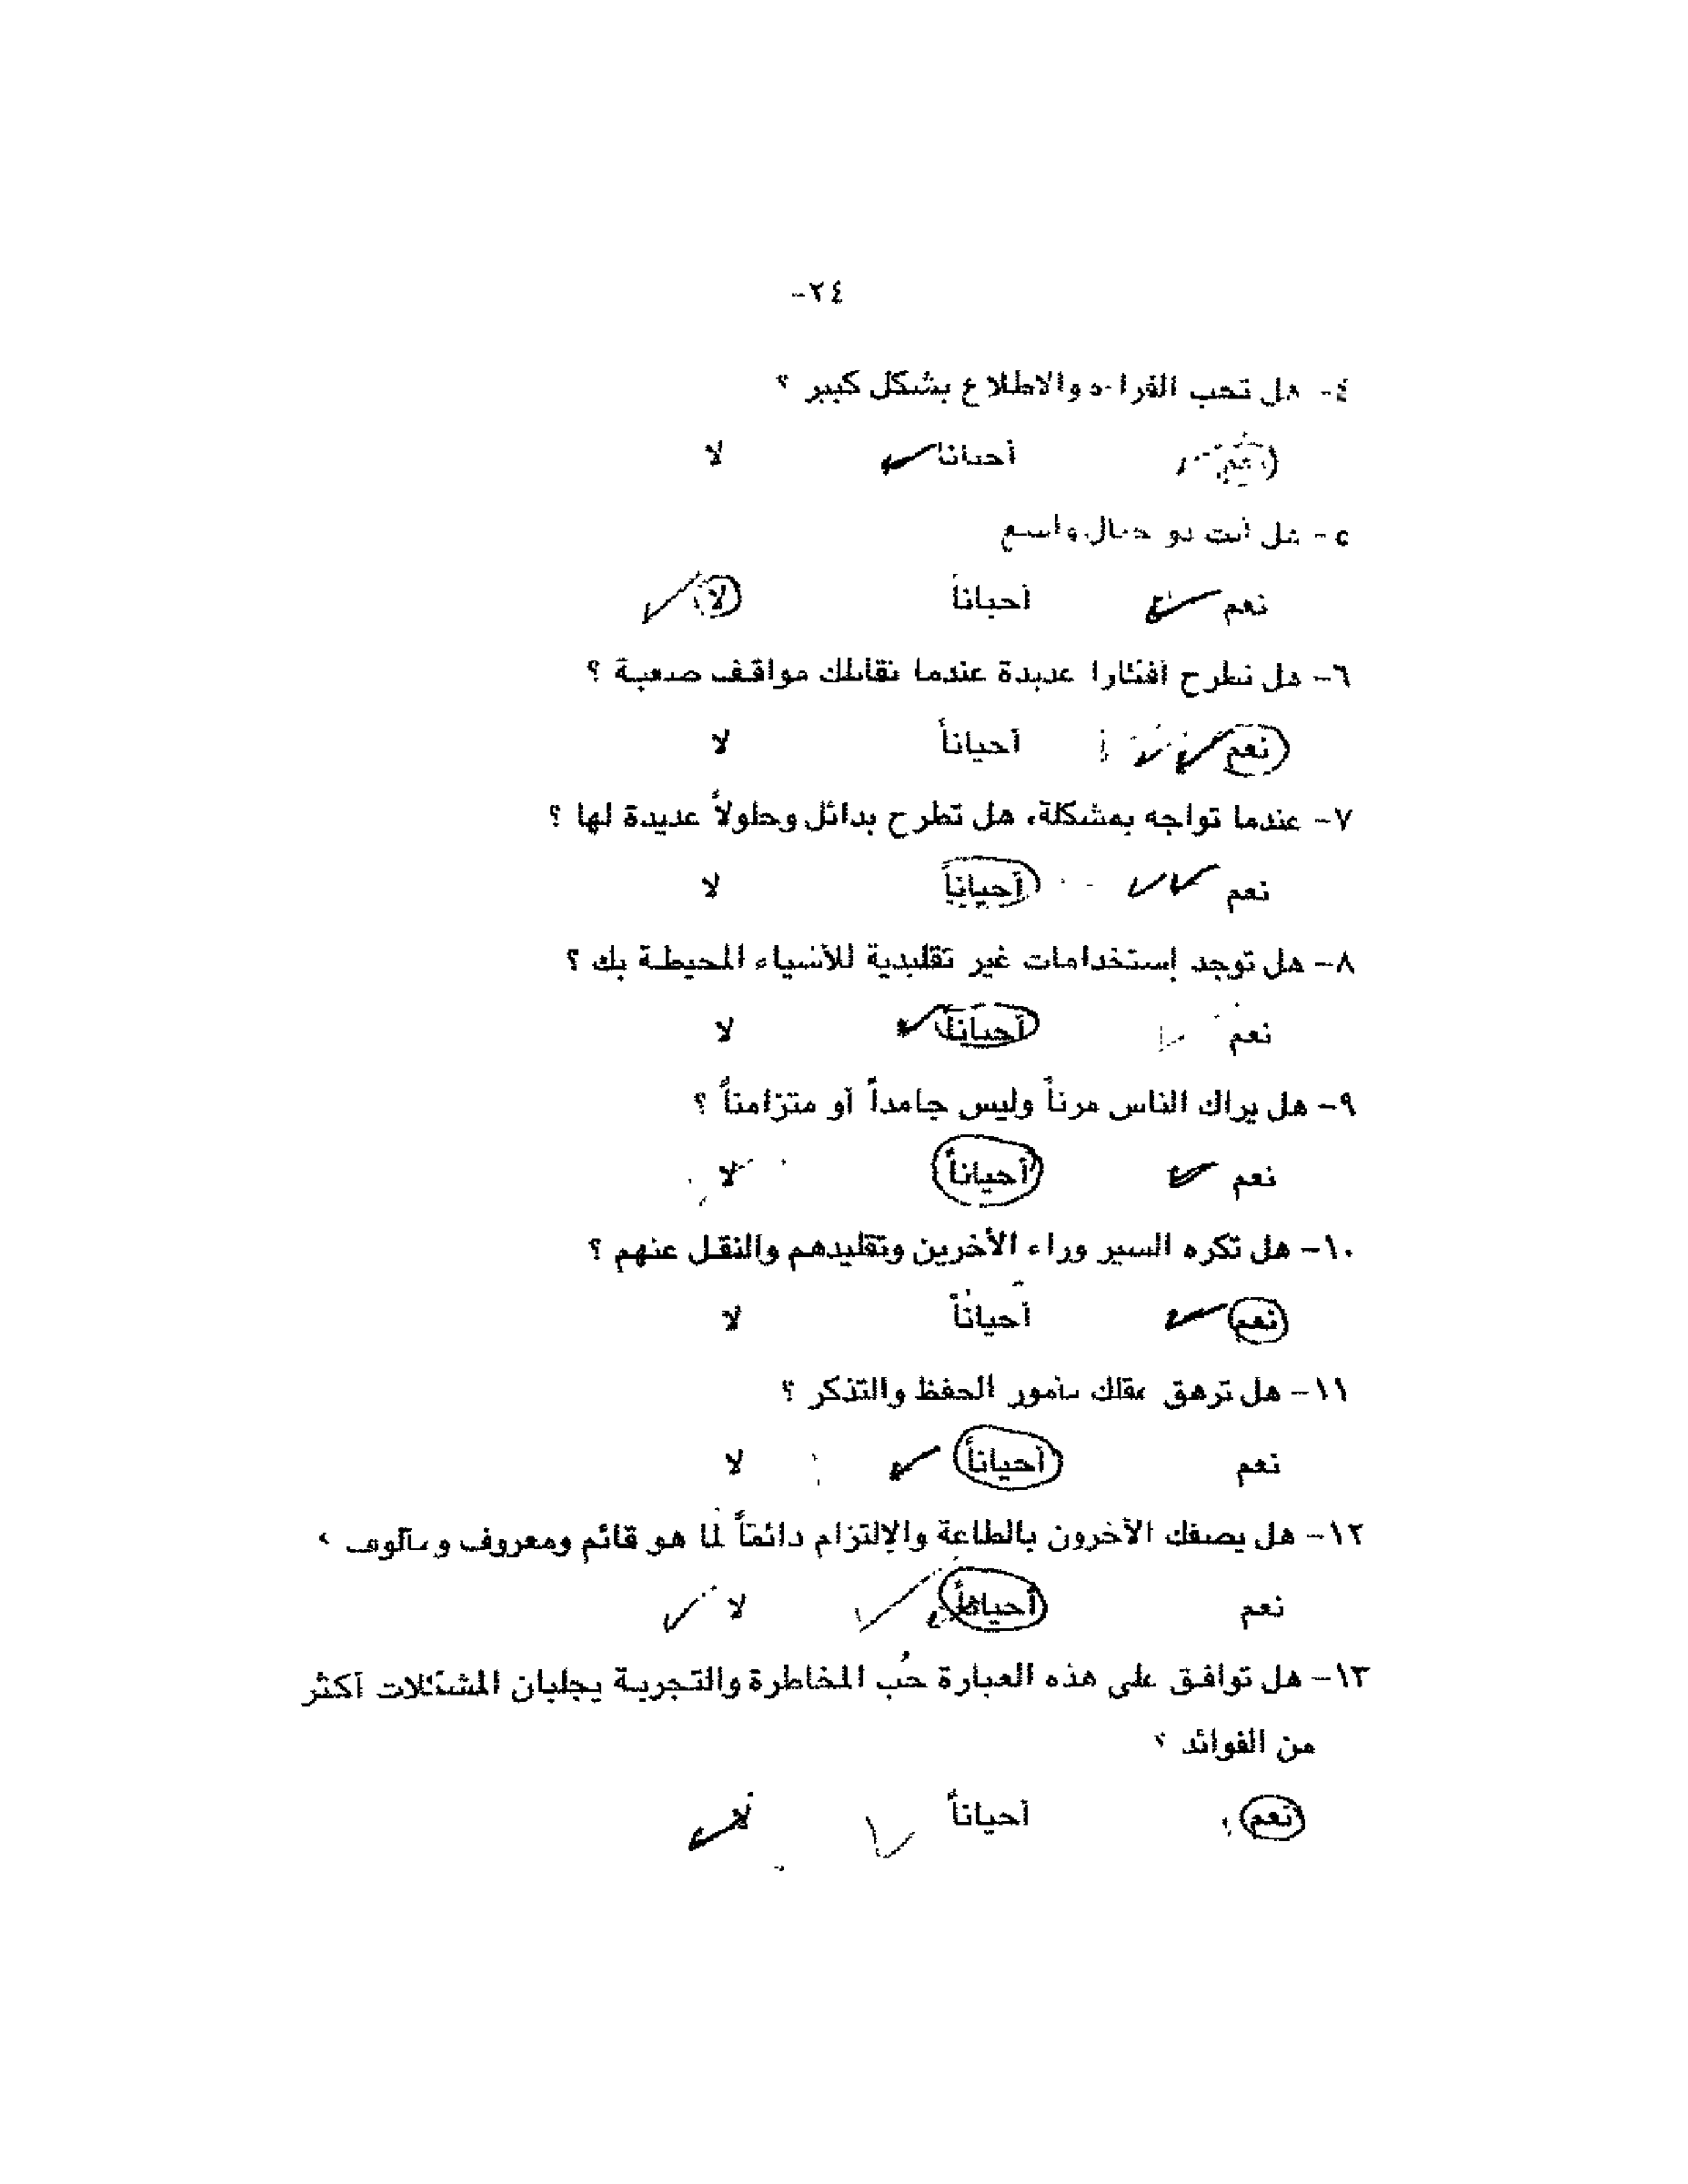 -٢٤
٤- هل تحب القراءة والاطلاع بشكل كبير ؟
نعم أحيانا لا
٥- هل أنت ذو خيال واسع
نعم أحياناً لا
٦- هل تطرح أفكارا عديدة عندما تقابلك مواقف صعبة ؟
نعم أحياناً لا
٧- عندما تواجه بمشكلة، هل تطرح بدائل وحلولاً عديدة لها ؟
نعم أحياناً لا
٨- هل توجد إستخدامات غير تقليدية للأشياء المحيطة بك ؟
نعم أحياناً لا
٩- هل يراك الناس مرناً وليس جامداً أو متزامتاً ؟
نعم أحياناً لا
١٠- هل تكره السير وراء الأخرين وتقليدهم والنقل عنهم ؟
نعم أحياناً لا
١١- هل ترهق عقلك بأمور الحفظ والتذكر ؟
نعم أحياناً لا
١٢- هل يصفك الآخرون بالطاعة والإلتزام دائماً لما هو قائم ومعروف ومألوف ؟
نعم أحياناً لا
١٣- هل توافق على هذه العبارة حُب المخاطرة والتجربة يجلبان المشكلات أكثر
من الفوائد ؟
نعم أحياناً لا